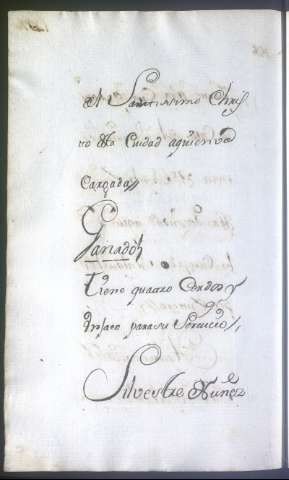 al Santissimo Chris
to de Ciudad aquien va
Cargada //
Ganado
tiene quatro Cerdos y
para su servicio //
Silvestre Nuñez